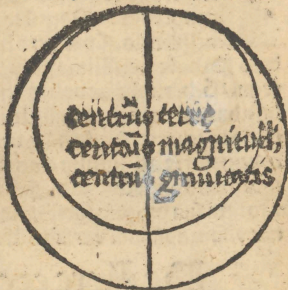 centrũ terre
centrũ magnitudĩ,
centrũ grauitatis